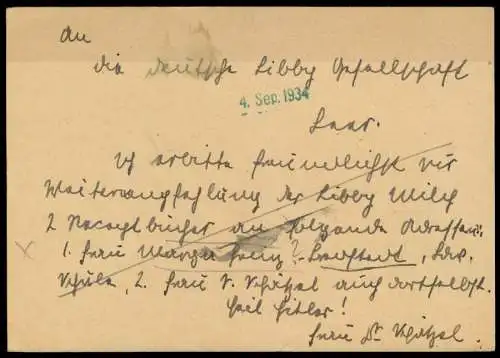 An
die Deutsche Libby Gesellschaft
4. Sep. 1934
Leer.
Ich erbitte freundlichst zur
Weiterempfehlung der Libby Milch
2 Rezeptbücher an folgende Adressen:
1. Frau
Schule, 2. Frau V. Schätzel auch dortselbst.
Heil Hitler!
Frau Dr. Schätzel.